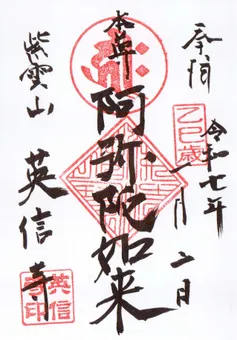 奉拝
令和七年
一月二日
乙巳歳
本尊
阿弥陀如来
紫雲山
英信寺
英信寺印